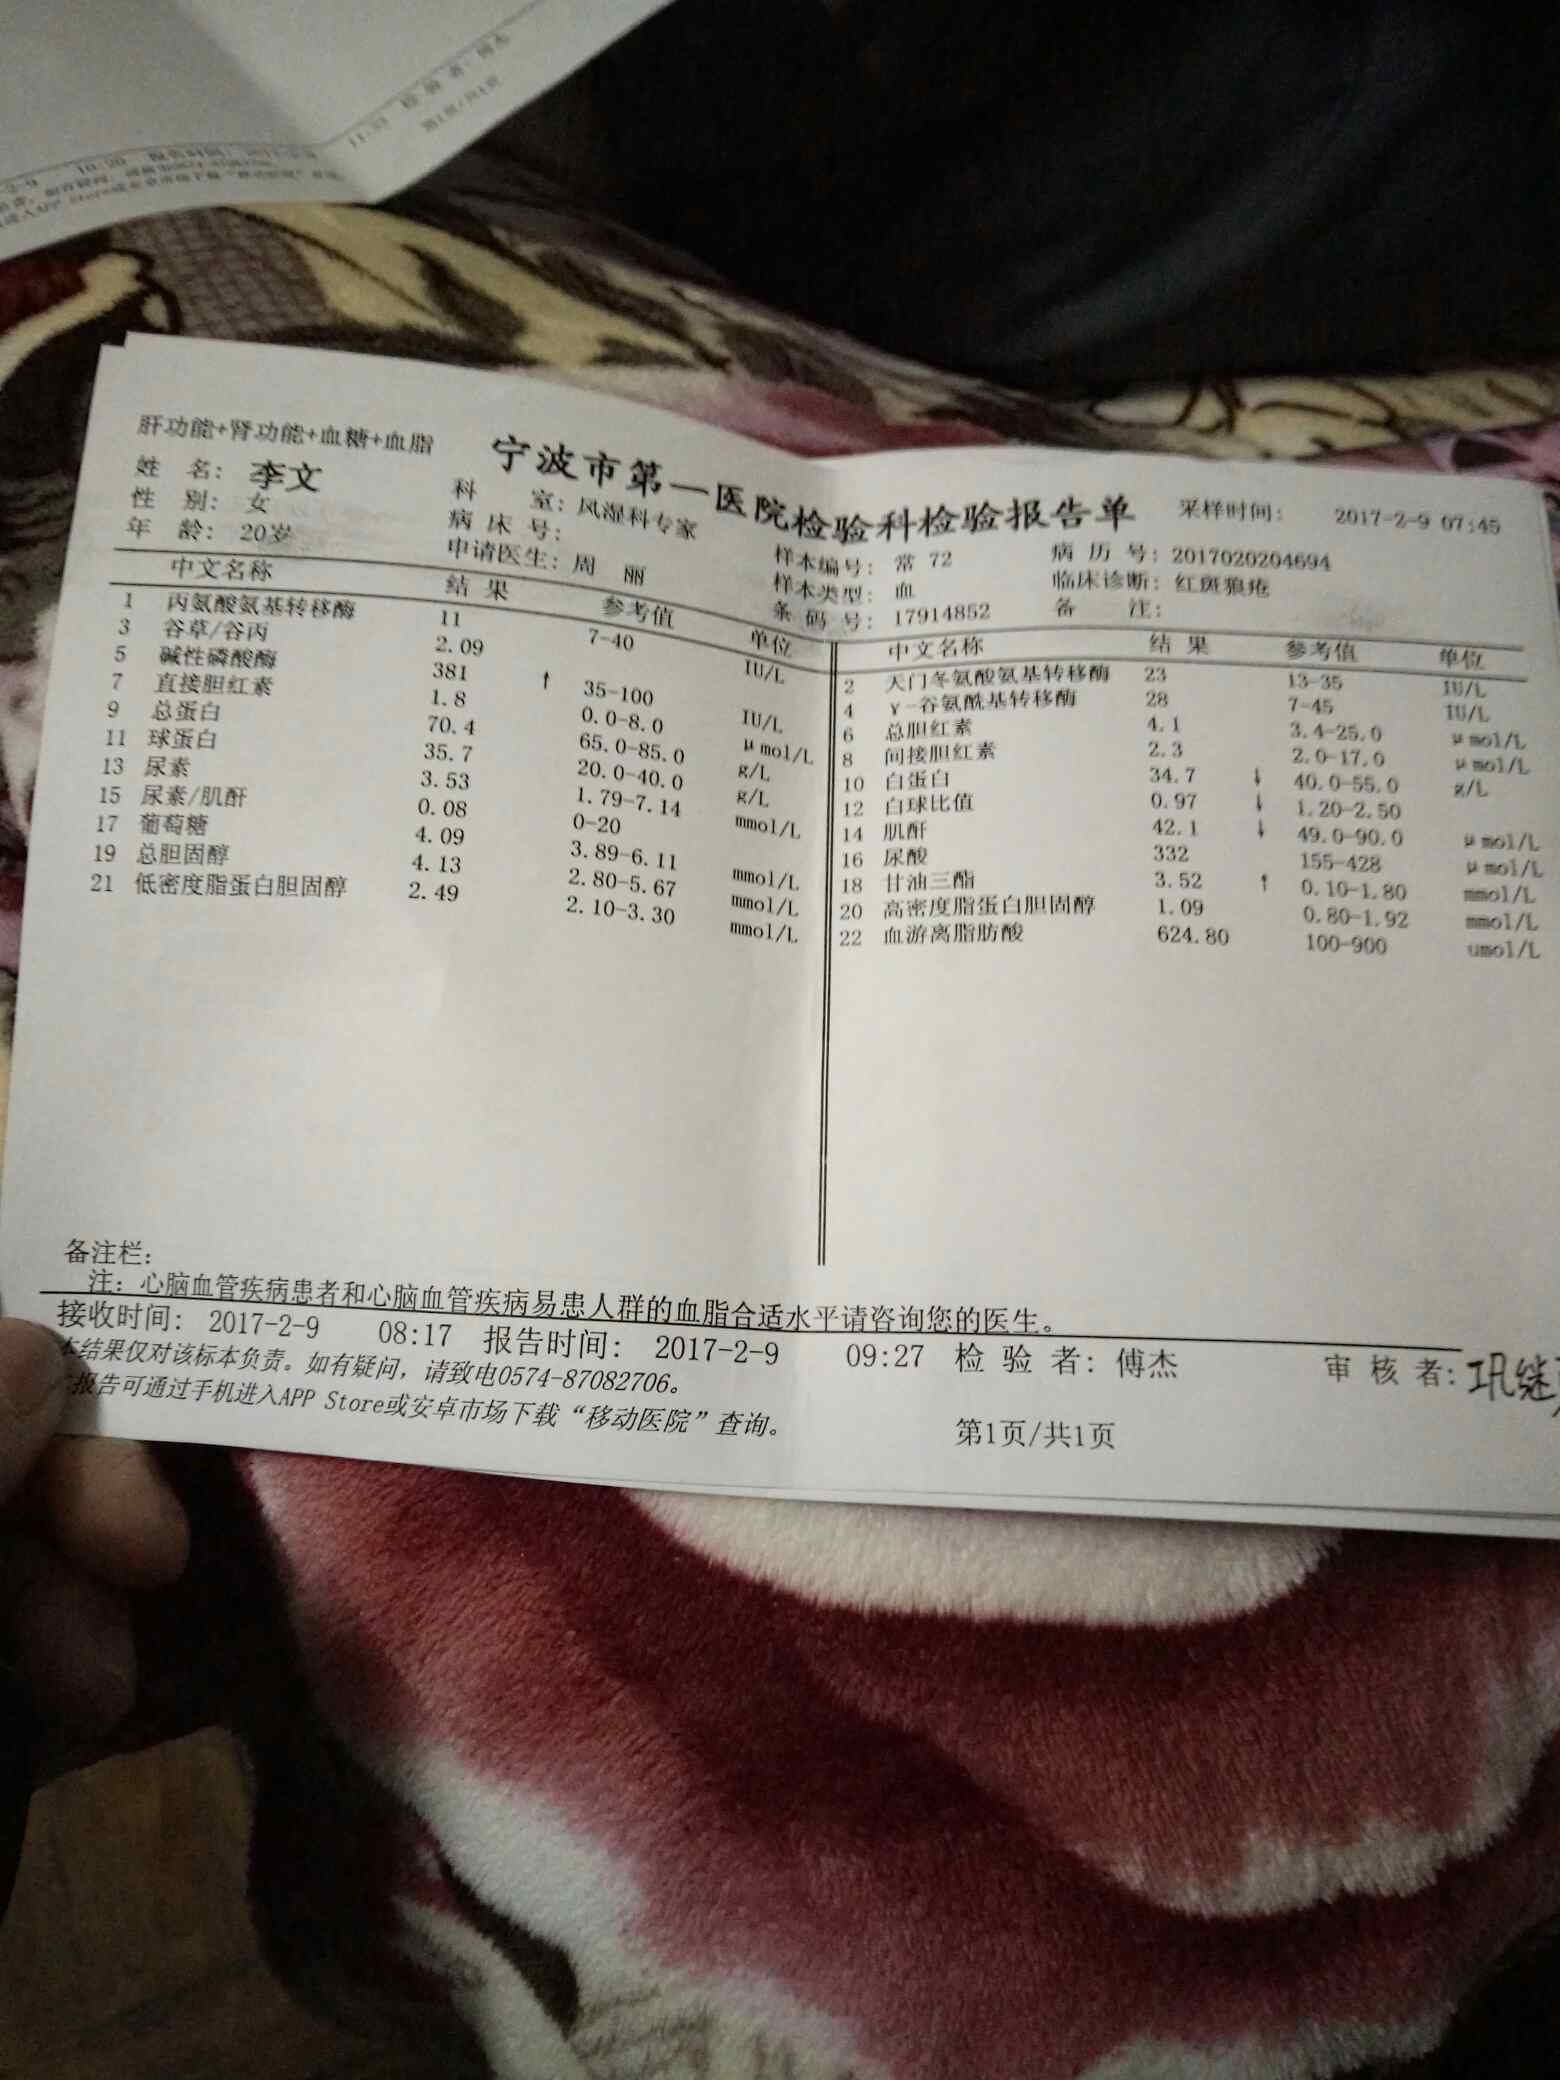 肝功能+肾功能+血糖+血脂
宁波市第一医院检验科检验报告单
采样时间: 2017-2-9 07:45
姓 名: 李文 科 室: 风湿科专家 样本编号: 常 72 病 历 号: 2017020204694
性 别: 女 病 床 号: 样本类型: 血 临床诊断: 红斑狼疮
年 龄: 20岁 申请医生: 周 丽 条 码 号: 17914852 备 注:
中文名称 结 果 参考值 单位
1 丙氨酸氨基转移酶 11 7-40 IU/L
3 谷草/谷丙 2.09
5 碱性磷酸酶 381 ↑ 35-100 IU/L
7 直接胆红素 1.8 0.0-8.0 μmol/L
9 总蛋白 70.4 65.0-85.0 g/L
11 球蛋白 35.7 20.0-40.0 g/L
13 尿素 3.53 1.79-7.14 mmol/L
15 尿素/肌酐 0.08 0-20
17 葡萄糖 4.09 3.89-6.11 mmol/L
19 总胆固醇 4.13 2.80-5.67 mmol/L
21 低密度脂蛋白胆固醇 2.49 2.10-3.30 mmol/L
中文名称 结 果 参考值 单位
2 天门冬氨酸氨基转移酶 23 13-35 IU/L
4 γ-谷氨酰基转移酶 28 7-45 IU/L
6 总胆红素 4.1 3.4-25.0 μmol/L
8 间接胆红素 2.3 2.0-17.0 μmol/L
10 白蛋白 34.7 ↓ 40.0-55.0 g/L
12 白球比值 0.97 ↓ 1.20-2.50
14 肌酐 42.1 ↓ 49.0-90.0 μmol/L
16 尿酸 332 155-428 μmol/L
18 甘油三酯 3.52 ↑ 0.10-1.80 mmol/L
20 高密度脂蛋白胆固醇 1.09 0.80-1.92 mmol/L
22 血游离脂肪酸 624.80 100-900 umol/L
备注栏:
注: 心脑血管疾病患者和心脑血管疾病易患人群的血脂合适水平请咨询您的医生。
接收时间: 2017-2-9 08:17 报告时间: 2017-2-9 09:27 检 验 者: 傅杰 审 核 者: 巩继
本结果仅对该标本负责。如有疑问, 请致电0574-87082706。
报告可通过手机进入APP Store或安卓市场下载“移动医院”查询。
第1页/共1页